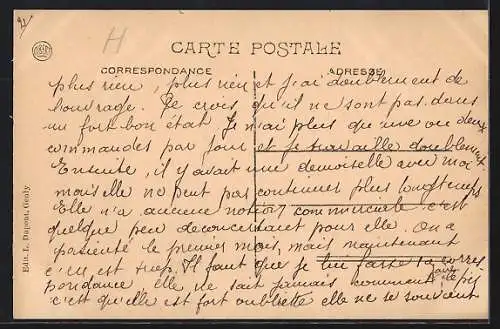 H
CARTE POSTALE
CORRESPONDANCE
ADRESSE
plus rien, plus rien et j'ai doublement de
l'ouvrage. Je crois qu'il ne sont pas dans
un fort bon état. Je n'ai plus que une ou deux
commandes par jour et je travaille doublement.
Ensuite, il y avait une demoiselle avec moi
mais elle ne peut pas continuer plus longtemps
Elle n'a aucune notion commerciale c'est
quelque peu déconcertant pour elle. On a
patienté le premier mois, mais maintenant
c'en est trop. Il faut que je lui fasse la corres
pondance, elle ne sait jamais comment faire et le pis
c'est qu'elle est fort oubliette elle ne se souvient
Edit. L. Dupont, Genly